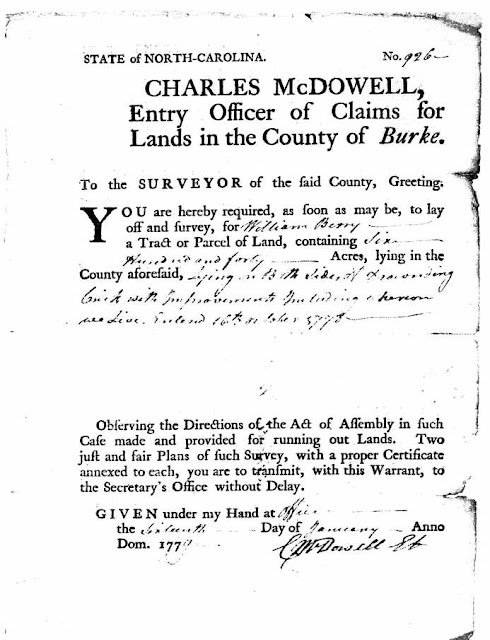 STATE of NORTH-CAROLINA. No. 926
CHARLES McDOWELL,
Entry Officer of Claims for
Lands in the County of Burke.
To the SURVEYOR of the ſaid County, Greeting.
YOU are hereby required, as ſoon as may be, to lay
off and ſurvey, for William Berry
a Tract or Parcel of Land, containing Six
Hundred and forty Acres, lying in the
County aforeſaid, Lying on Both Sides of
Crick with Improvements Including whereon
we Live. Enterd 16th october 1778
Obſerving the Directions of the Act of Aſſembly in ſuch
Caſe made and provided for running out Lands. Two
juſt and fair Plans of ſuch Survey, with a proper Certificate
annexed to each, you are to tranſmit, with this Warrant, to
the Secretary's Office without Delay.
GIVEN under my Hand at office
the Sixteenth Day of January Anno
Dom. 1779 C McDowell